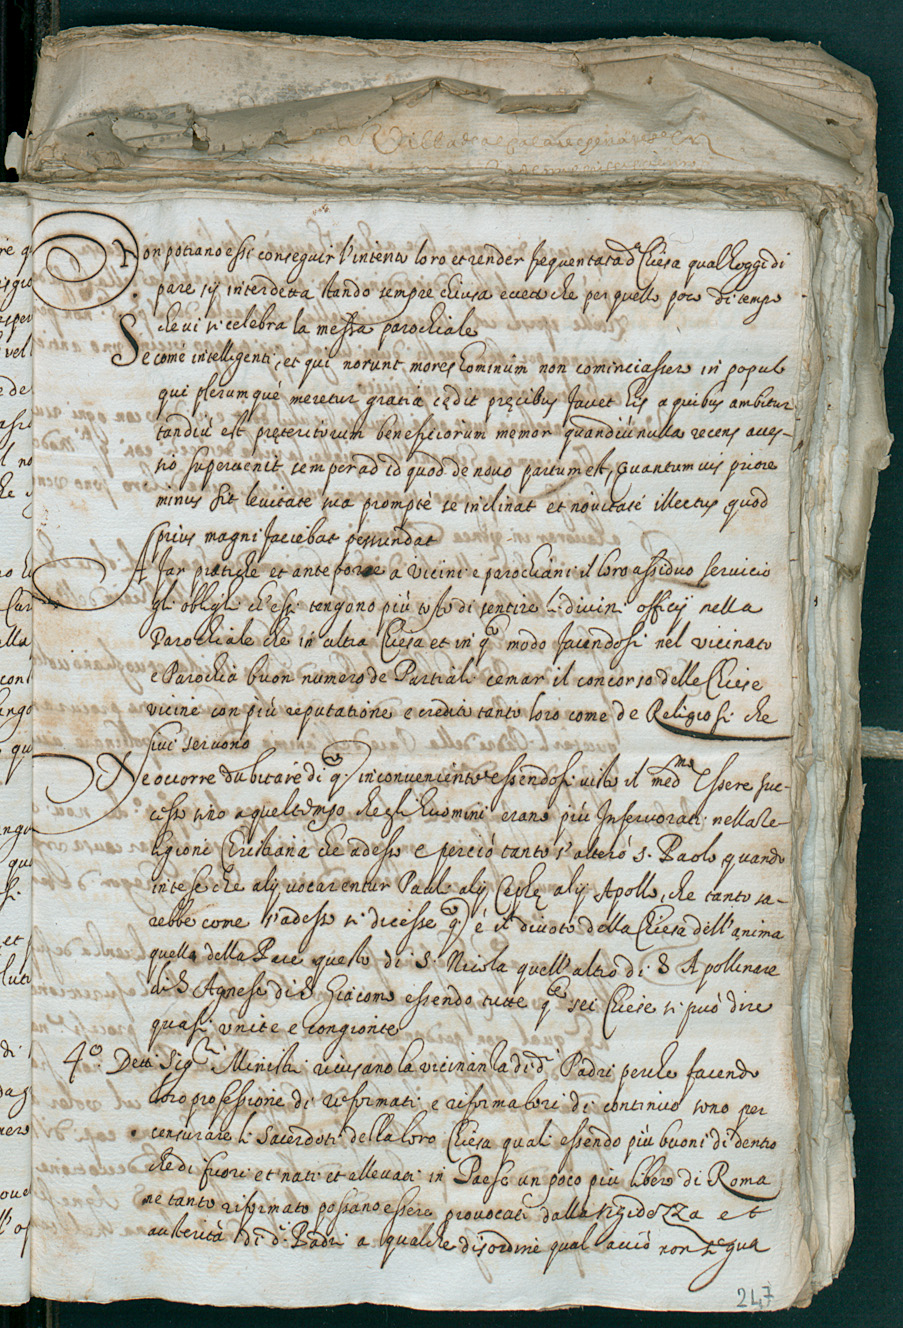 Non potrano essi conseguir l'intento loro et render frequentata d.ᵃ Chiesa qual hoggidi
pare sij interdetta stando sempre chiusa eccetto che per quello poco di tempo
che vi si celebra la messa parochiale
Se come intelligenti, et qui norunt mores hominum non cominciassero in popul
qui plerumque meretur gratia cędit pręcibus favet his a quibus ambitur
tandiu est pręteritorum beneficiorum memor quandiu nulla recens acces-
sio supervenit semper ad id quod de novo partum est, quantumvis priore
minus sit levitate sua promptè se inclinat et novitate illectus quod
prius magni faciebat pessundat
A far pratiche et anteporre a vicini e parochiani il loro assiduo servicio
gl'oblighi ch'essi tengono più tosto di sentire li divini officij nella
Parochiale che in altra Chiesa et in q.º modo facendosi nel vicinato
e Parochia buon numero de Partiali cemar il concorso delle Chiese
vicine con più reputatione e credito tanto loro come de Religiosi che
ivi servono
Ne occorre dubitare di q.º inconveniente essendosi visto il med.ᵐᵒ essere suc-
cesso sino a quel tempo che gli huomini erano più infervorati nella Re-
ligione Christiana che adesso e perciò tanto s'alterò S. Paolo quando
intese che alij vocarentur Pauli alij Cephę alij Apollo, che tanto sa-
rebbe come s'adesso si dicesse q.º è il divoto della Chiesa dell'anima
quello della Pace questo di S. Nicola quell'altro di S. Apollinare
di S. Agnese di S. Giacomo essendo tutte q.ᵗᵉ sei Chiese si può dire
quasi unite e congionte
4º Detti Sig.ʳⁱ Ministri ricusano la vicinanza di d.ⁱ Padri perche facendo
loro professione di reformati e riformatori di continuo sono per
censurare li Sacerdoti della loro Chiesa quali essendo più buoni di dentro
che di fuori et nati et allevati in Paese un poco più libero di Roma
ne tanto riformato possano essere provocati dalla rigidezza et
austerità di d.ⁱ Padri a qualche disordine qual acciò non segua
247